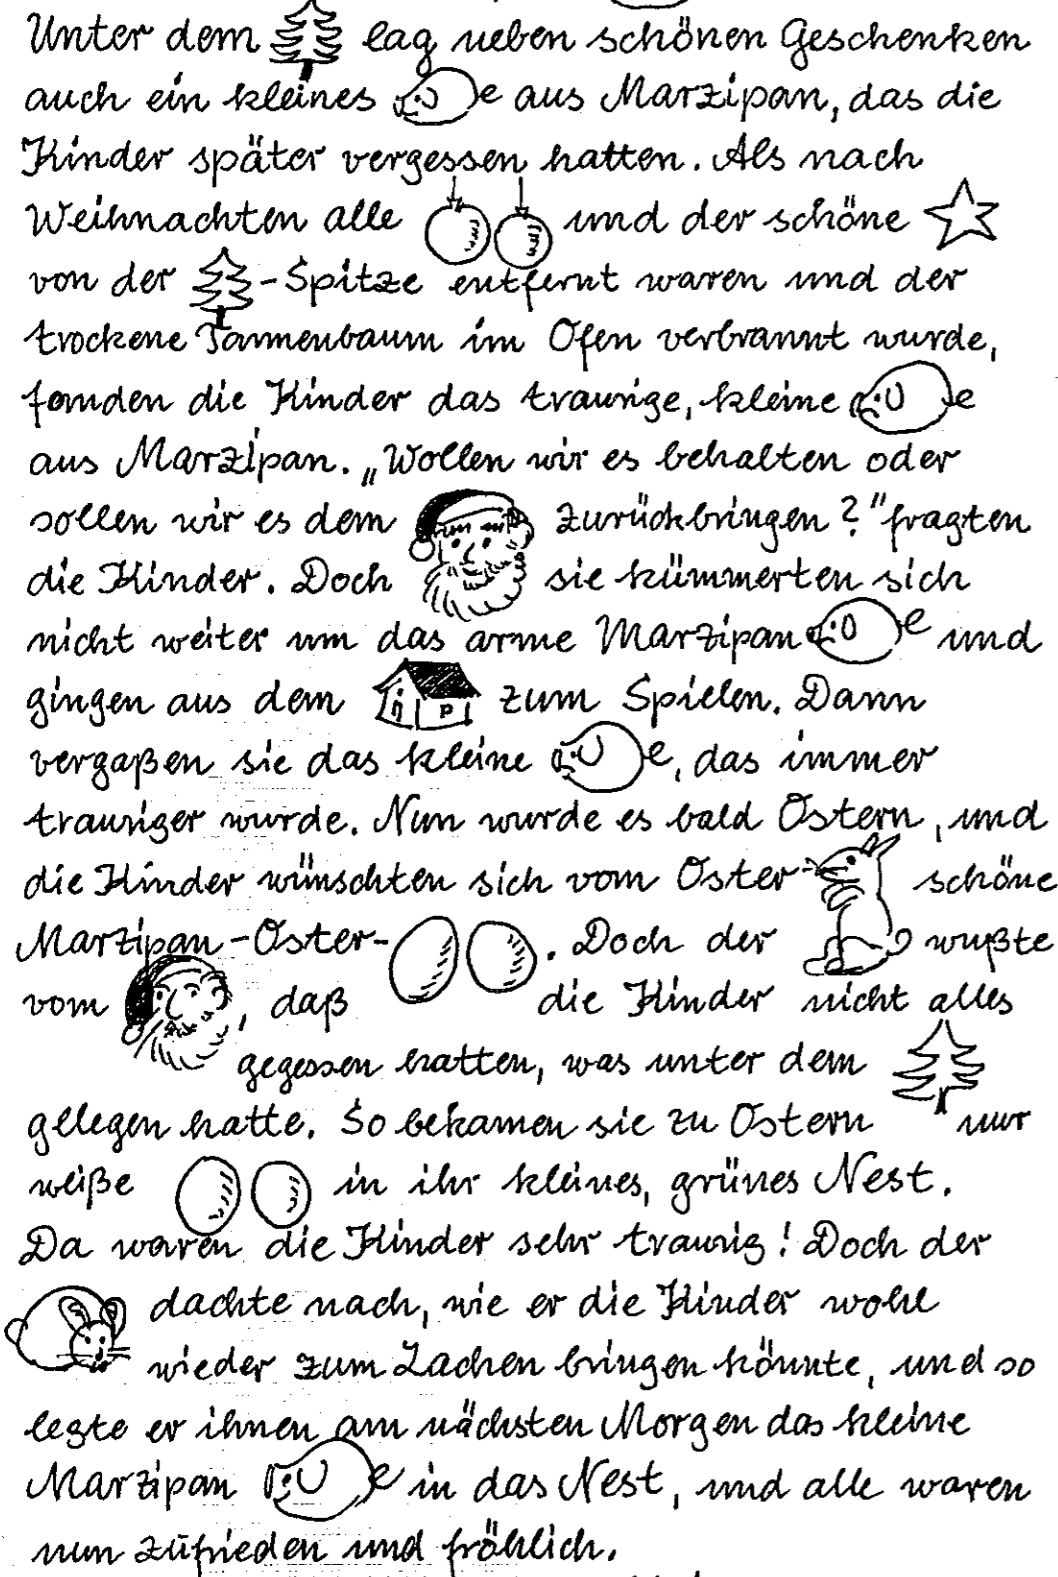 Unter dem lag neben schönen Geschenken
auch ein kleines aus Marzipan, das die
Kinder später vergessen hatten. Als nach
Weihnachten alle und der schöne
von der -Spitze entfernt waren und der
trockene Tannenbaum im Ofen verbrannt wurde,
fanden die Kinder das traurige, kleine
aus Marzipan. „Wollen wir es behalten oder
sollen wir es dem zurückbringen?" fragten
die Kinder. Doch sie kümmerten sich
nicht weiter um das arme Marzipan und
gingen aus dem zum Spielen. Dann
vergaßen sie das kleine , das immer
trauriger wurde. Nun wurde es bald Ostern, und
die Kinder wünschten sich vom Oster- schöne
Marzipan-Oster- . Doch der wußte
vom , daß die Kinder nicht alles
gegessen hatten, was unter dem
gelegen hatte. So bekamen sie zu Ostern nur
weiße in ihr kleines, grünes Nest.
Da waren die Kinder sehr traurig! Doch der
dachte nach, wie er die Kinder wohl
wieder zum Lachen bringen könnte, und so
legte er ihnen am nächsten Morgen das kleine
Marzipan in das Nest, und alle waren
nun zufrieden und fröhlich.